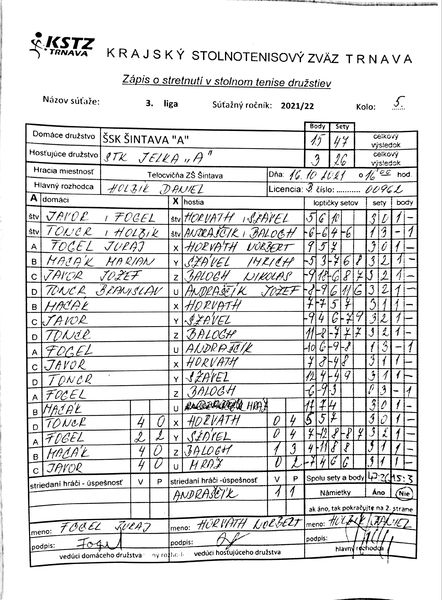 KSTZ
TRNAVA
KRAJSKÝ STOLNOTENISOVÝ ZVÄZ TRNAVA
Zápis o stretnutí v stolnom tenise družstiev
Názov súťaže: 3. liga Súťažný ročník: 2021/22 Kolo: 5.
Body Sety
Domáce družstvo ŠSK ŠINTAVA "A" 15 47 celkový výsledok
Hosťujúce družstvo STK JELKA „A" 3 26 celkový výsledok
Hracia miestnosť Telocvičňa ZŠ Šintava Dňa: 16.10.2021 o 16 00 hod.
Hlavný rozhodca HOLBIK DANIEL Licencia: 3 číslo: 00962
A domáci X hostia loptičky setov sety body
štv JAVOR , FOGEL štv HORVATH , SZAVEL 5 6 10 3 0 1 -
štv TONCR , HOLBIK štv ANDRAŠČIK , BALOGH -6 -6 4 -6 1 3 - 1
A FOGEL JURAJ X HORVATH NORBERT 9 5 7 3 0 1 -
B MACÁK MARIAN Y SZAVEL IMRICH 3 2 1 -
C JAVOR JOZEF Z BALOGH NIKOLAS 3 2 1 -
D TONCR BRANISLAV U ANDRAŠČIK JOZEF 3 2 1 -
B MACÁK X HORVATH 7 -7 5 7 3 1 1 -
C JAVOR Y SZAVEL 9 4 6 -7 9 3 2 1 -
D TONCR Z BALOGH 3 2 1 -
A FOGEL U ANDRAŠČIK -10 6 -9 -8 1 3 - 1
C JAVOR X HORVATH 7 8 -4 8 3 1 1 -
D TONCR Y SZAVEL 12 4 -4 9 3 1 1 -
A FOGEL Z BALOGH 0 3 - 1
B MACÁK U MRAZ 3 0 1 -
D TONCR 4 0 X HORVATH 0 4 5 5 7 3 0 1 -
A FOGEL 2 2 Y SZAVEL 0 4 7 -12 8 -8 4 3 2 1 -
B MACÁK 4 0 Z BALOGH 1 3 4 -11 8 8 3 1 1 -
C JAVOR 4 0 U MRAZ 0 2 -7 4 6 6 3 1 1 -
striedaní hráči - úspešnosť V P striedaní hráči - úspešnosť V P Spolu sety a body 47:26 15:3
ANDRAŠČIK 1 1 Námietky Áno Nie
ak áno, tak pokračujte na 2. strane
meno: FOGEL JURAJ meno: HORVATH NORBERT HOLBIK DANIEL
podpis: podpis:
vedúci domáceho družstva vedúci hosťujúceho družstva hlavný rozhodca